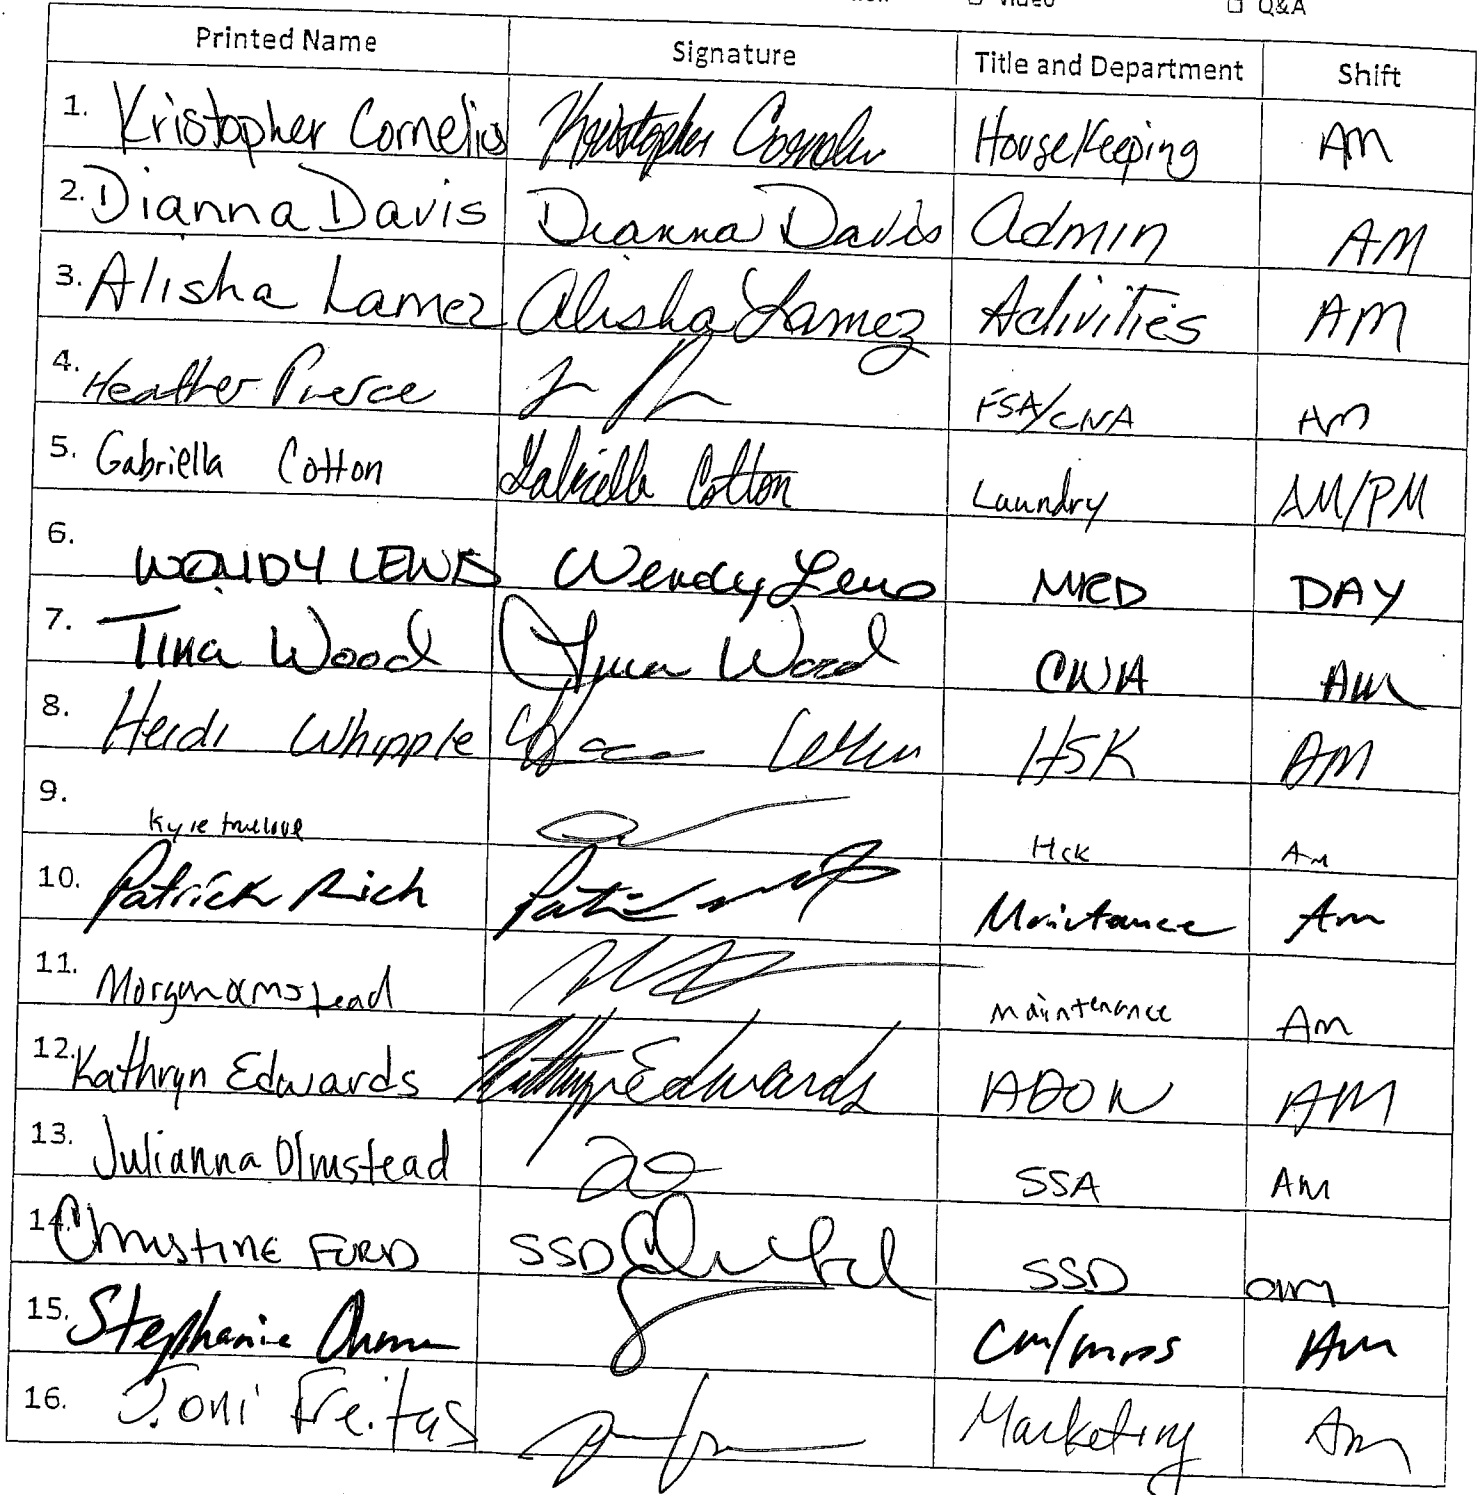 Video Q&A
Printed Name Signature Title and Department Shift
1. Kristopher Cornelius Kristopher Cornelius HouseKeeping AM
2. Dianna Davis Dianna Davis Admin AM
3. Alisha Lamez Alisha Lamez Activities AM
4. Heather Pierce FSA/CNA Am
5. Gabriella Cotton Gabriella Cotton Laundry AM/PM
6. WENDY LEWIS Wendy Lewis MRCD DAY
7. Tina Wood Tina Wood CNA Am
8. Heidi Whipple HSK AM
9. Kyle truelove Hsk Am
10. Patrick Rich Am
11. Morgan maintenance Am
12. Kathryn Edwards Kathryn Edwards ADON AM
13. Julianna Olmstead SSA AM
14. Christine FORD SSD SSD am
15. Stephanie Am
16. Joni Freitas Marketing Am